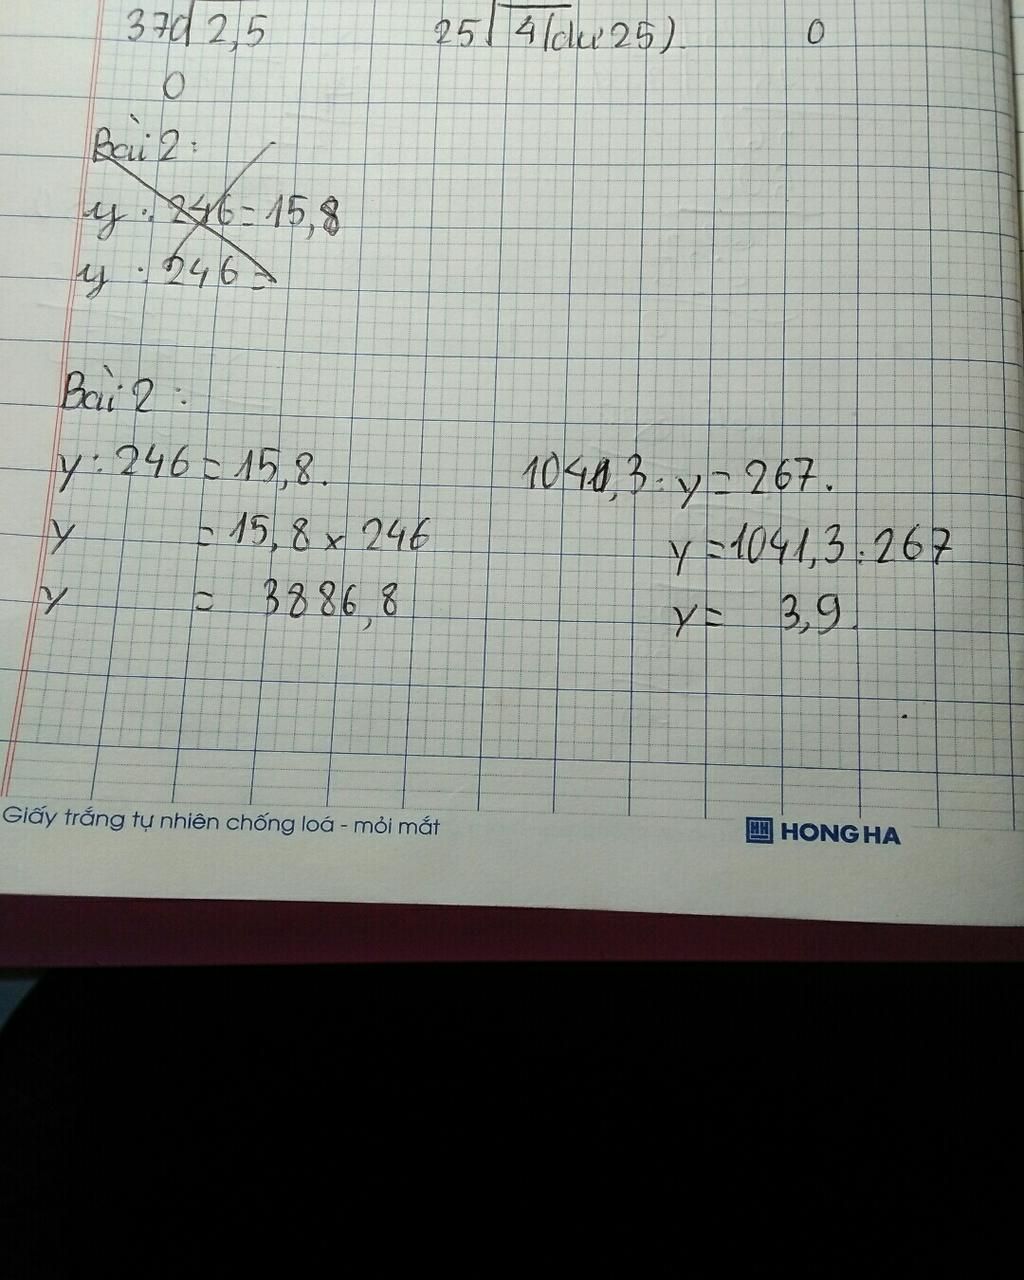 370 2,5 25 4 (dư 25) 0
0
Bài 2:
y : 246 = 15,8
y : 246 =
Bài 2 :
y : 246 = 15,8. 1041,3 : y = 267.
y = 15,8 x 246 y = 1041,3 : 267
y = 3886,8 y = 3,9.
Giấy trắng tự nhiên chống loá - mỏi mắt HONG HA